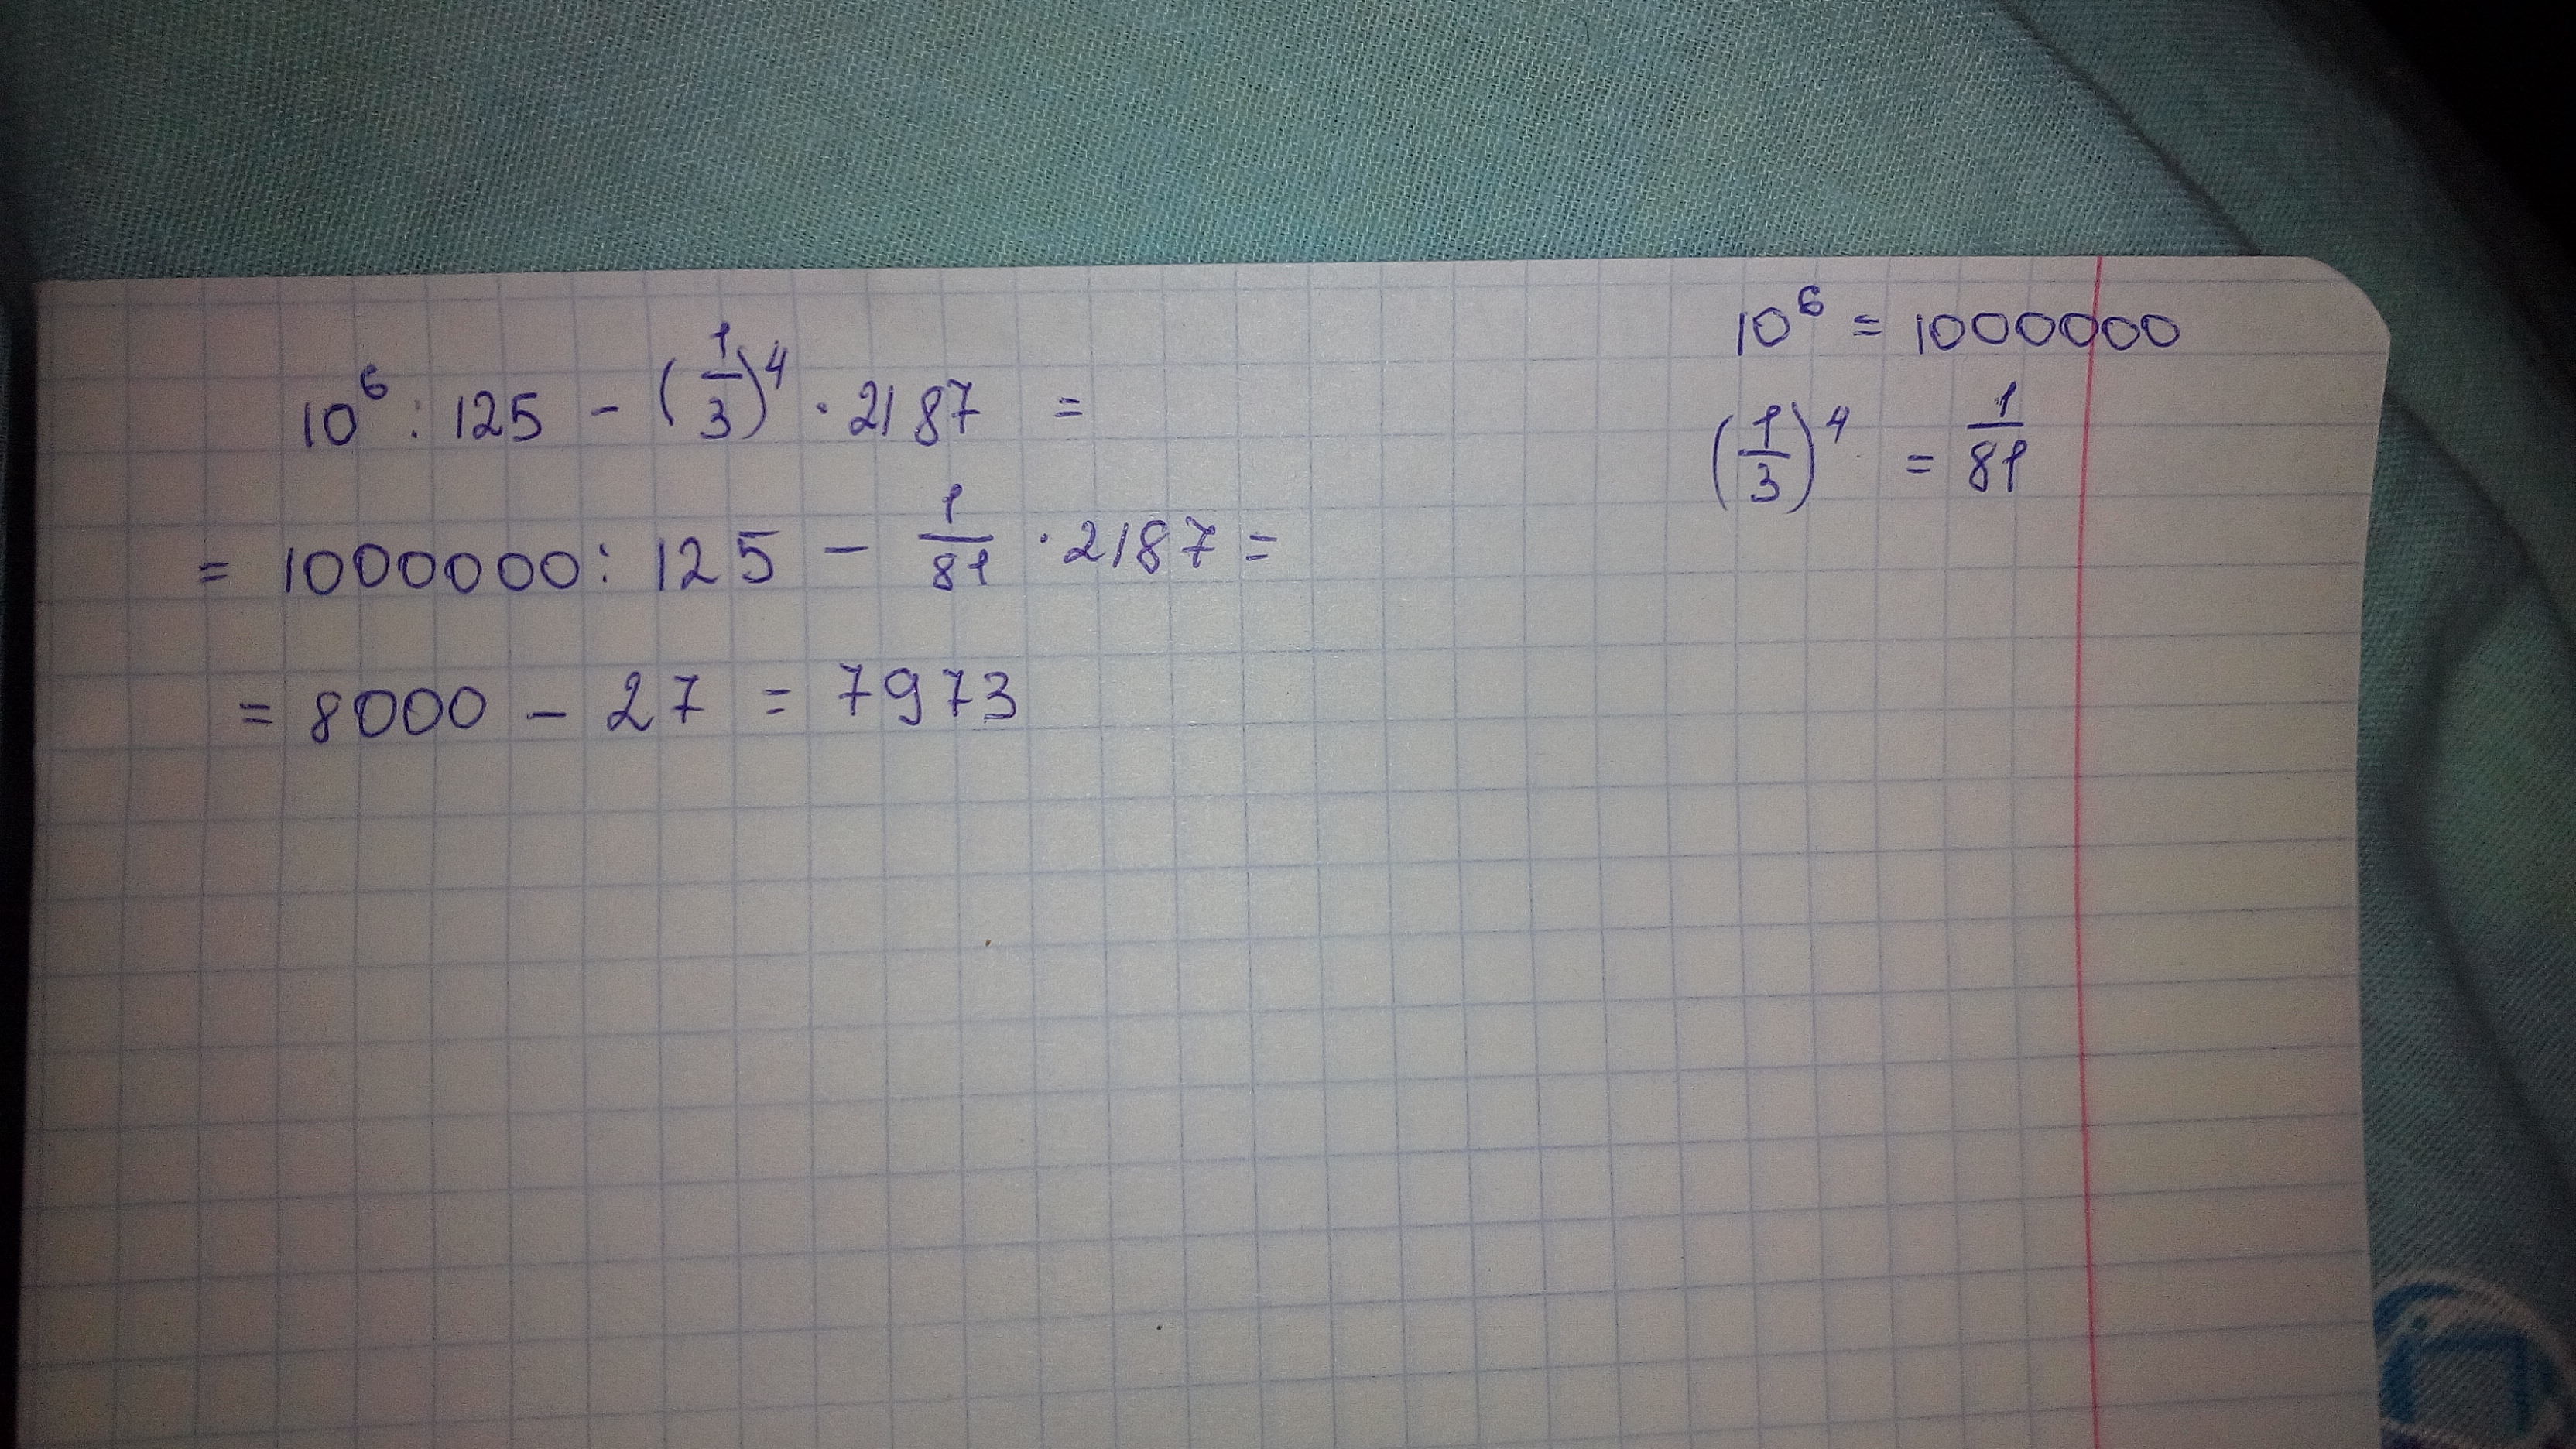 10⁶ : 125 − (1/3)⁴ · 2187 =
= 1000000 : 125 − 1/81 · 2187 =
= 8000 − 27 = 7973
10⁶ = 1000000
(1/3)⁴ = 1/81